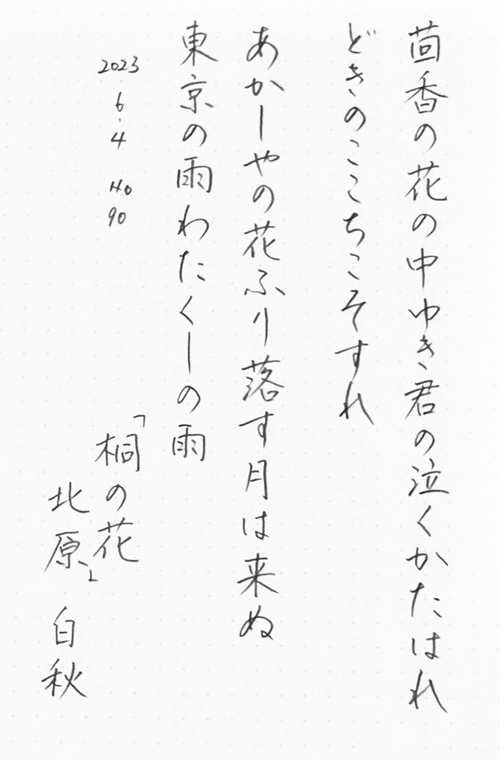 茴香の花の中ゆき君の泣くかたはれ
どきのここちこそすれ
あかしやの花ふり落す月は来ぬ
東京の雨わたくしの雨
2023.6.4 No 90
「桐の花」
北原 白秋